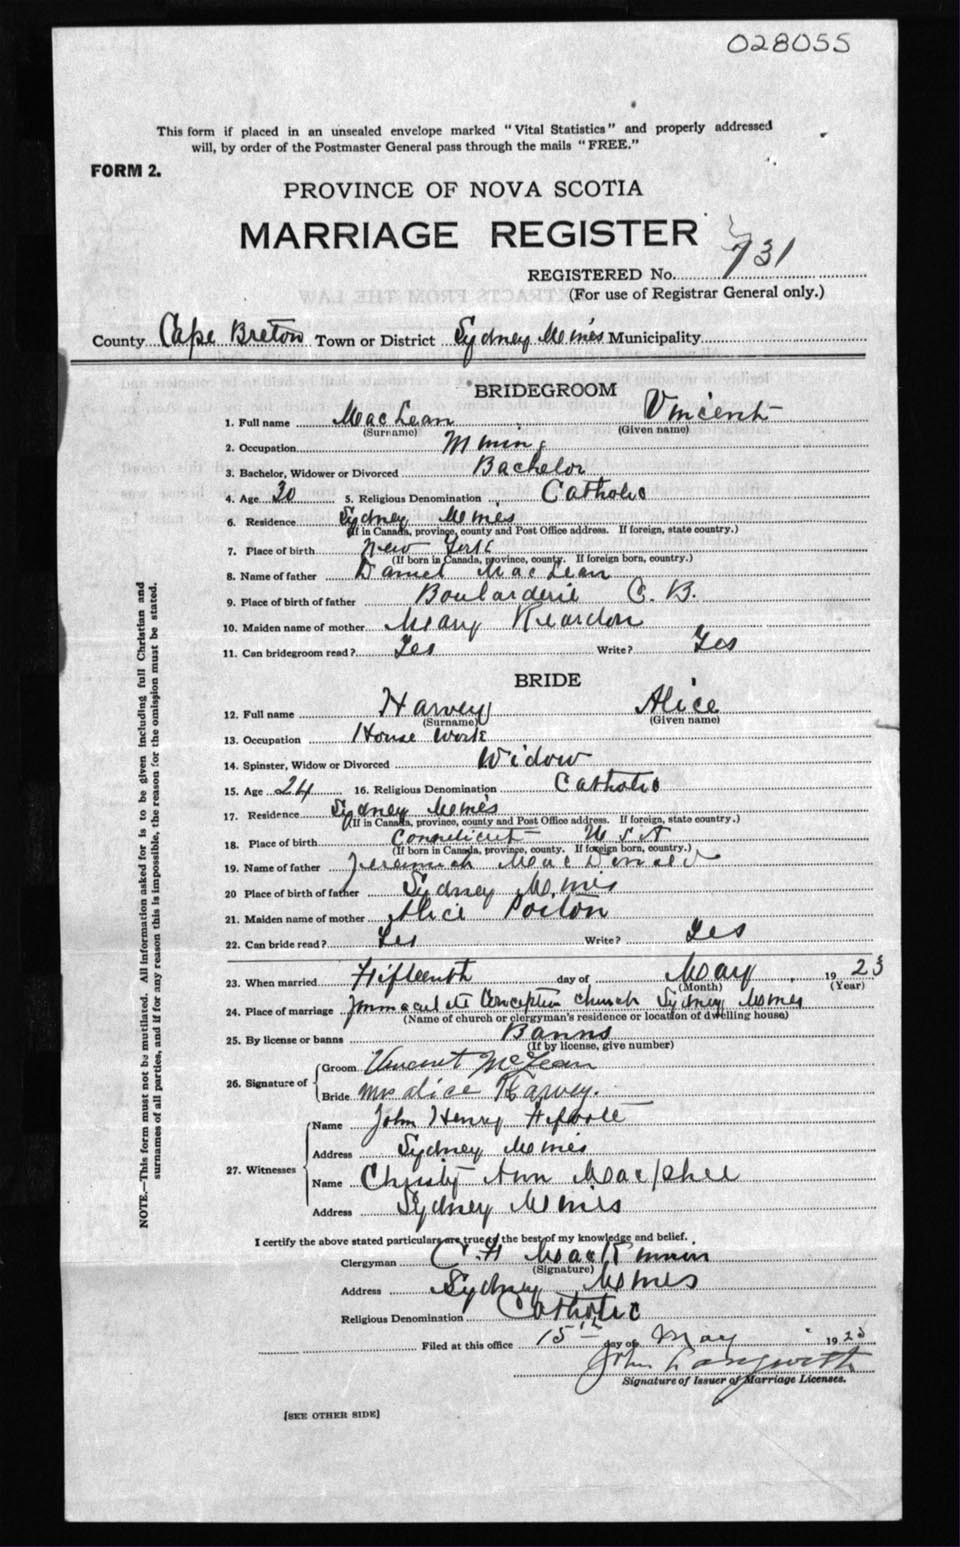 028055
This form if placed in an unsealed envelope marked "Vital Statistics" and properly addressed
will, by order of the Postmaster General pass through the mails "FREE."
FORM 2.
PROVINCE OF NOVA SCOTIA
MARRIAGE REGISTER
REGISTERED No. 731
(For use of Registrar General only.)
County Cape Breton Town or District Sydney Mines Municipality
BRIDEGROOM
1. Full name MacLean Vincent
(Surname) (Given name)
2. Occupation Mining
3. Bachelor, Widower or Divorced Bachelor
4. Age 30 5. Religious Denomination Catholic
6. Residence Sydney Mines
(If in Canada, province, county and Post Office address. If foreign, state country.)
7. Place of birth New York
(If born in Canada, province, county. If foreign born, country.)
8. Name of father Daniel MacLean
9. Place of birth of father Boularderie C. B.
10. Maiden name of mother Mary Reardon
11. Can bridegroom read? Yes Write? Yes
BRIDE
12. Full name Harvey Alice
(Surname) (Given name)
13. Occupation House Work
14. Spinster, Widow or Divorced Widow
15. Age 24 16. Religious Denomination Catholic
17. Residence Sydney Mines
(If in Canada, province, county and Post Office address. If foreign, state country.)
18. Place of birth Conneticut U S A
(If born in Canada, province, county. If foreign born, country.)
19. Name of father Jeremiah MacDonald
20 Place of birth of father Sydney Mines
21. Maiden name of mother Alice
22. Can bride read? Yes Write? Yes
23. When married Fifteenth day of May 1923
(Month) (Year)
24. Place of marriage Immaculate Conception Church Sydney Mines
(Name of church or clergyman's residence or location of dwelling house)
25. By license or banns Banns
(If by license, give number)
26. Signature of Groom Vincent McLean
Bride Mrs Alice Harvey.
27. Witnesses Name John Henry
Address Sydney Mines
Name Christy Ann MacPhee
Address Sydney Mines
I certify the above stated particulars are true to the best of my knowledge and belief.
Clergyman C. F. MacKinnon
(Signature)
Address Sydney Mines
Religious Denomination Catholic
Filed at this office 15th day of May 1923
John Langwith
Signature of Issuer of Marriage Licenses.
[SEE OTHER SIDE]
NOTE.—This form must not be mutilated. All information asked for is to be given including full Christian and
surnames of all parties, and if for any reason this is impossible, the reason for the omission must be stated.